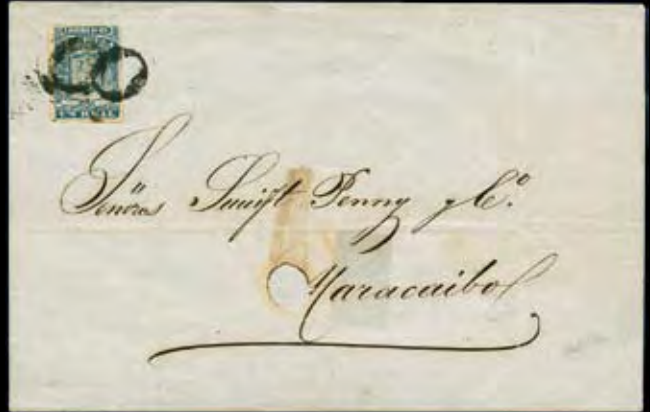 UN REAL
Señores Swift Penny y Cº.
Maracaibo